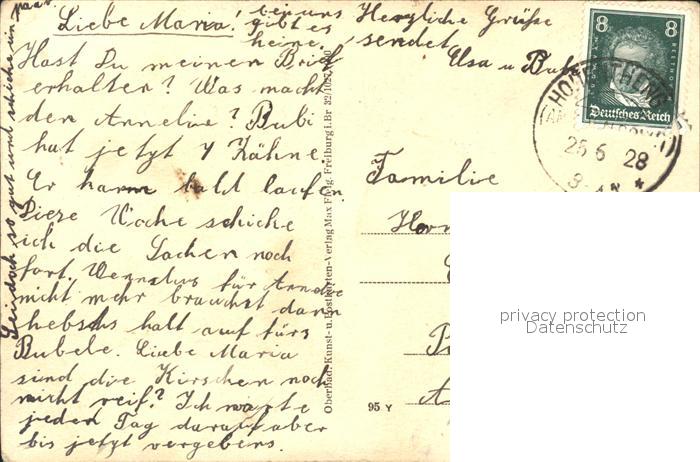 Liebe Maria!
Hast Du meinen Brief
erhalten? Was macht
den Annelie? Bubi
hat jetzt 4 Zähne.
Er kann bald laufen.
Diese Woche schicke
ich die Sachen noch
fort. Wenn du's für Annelie
nicht mehr brauchst dann
hebsch halt auf fürs
Bubele. Liebe Maria
sind die Kirschen noch
nicht reif? Ich warte
jeden Tag darauf aber
bis jetzt vergebens.
Sei doch so gut und schicke un paar
bei uns
gibt es
keine.
Herzliche Grüße
sendet
Elsa u. Bubi
Oberbad. Kunst- u. Postkarten-Verlag Max Freiburg i. Br
95 Y
8 8
Deutsches Reich
25 6 28
Familie
privacy protection
Datenschutz